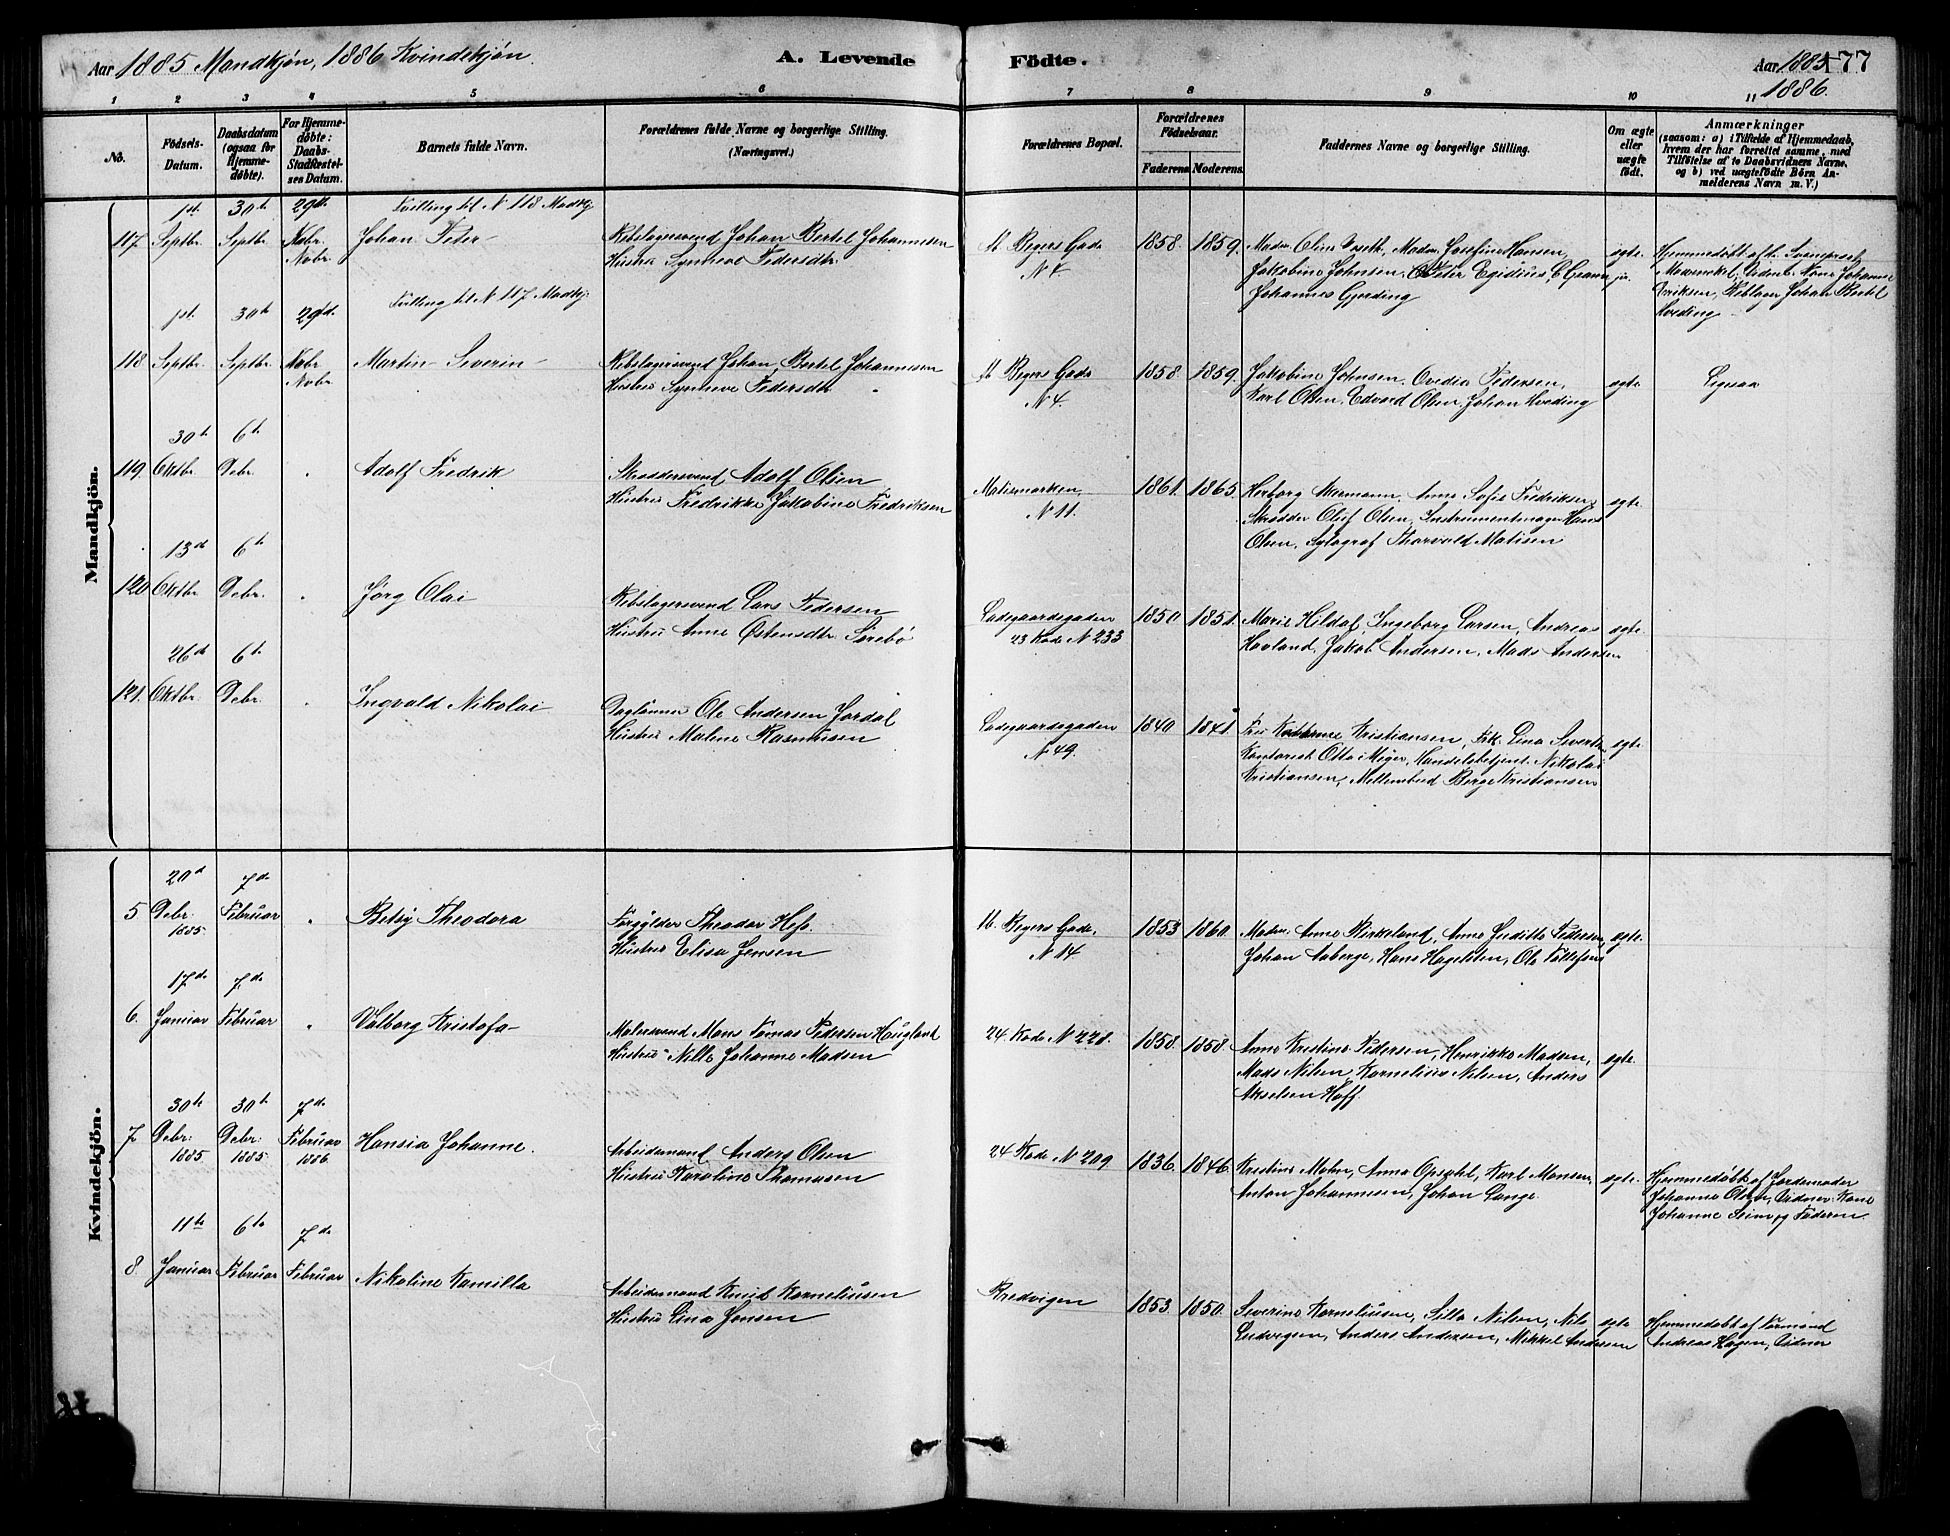 Aar 1885 Mandkjøn, 1886 Kvindekjøn.
A. Levende Födte.
Aar 1885 177
1886.
1 2 3 4 5 6 7 8 9 10 11
No.
Födsels-Datum.
Daabsdatum (ogsaa for Hjemme-döbte).
For Hjemme-döbte: Daabs-Stadfæstel-ses Datum.
Barnets fulde Navn.
Forældrenes fulde Navne og borgerlige Stilling.
(Næringsvei.)
Forældrenes Bopæl.
Forældrenes Födselsaar.
Faderens. Moderens.
Faddernes Navne og borgerlige Stilling.
Om ægte eller uægte födt.
Anmærkninger
(saasom: a) i Tilfælde af Hjemmedaab, hvem der har forrettet samme, med Tilföielse af to Daabsvidners Navne, og b) ved uægtefödte Börn Anmelderens Navn m. V.)
Mandkjön.
1st 30th 29de Tvilling til N 118 Madkj
117 Septbr. Septbr. Nobr. Johan Peter
Nobr.
Rebslagersvend Johan Bertel Johannesen
Hustru Synneve Pedersdtr.
Beyers Gade
N 4.
1858. 1859.
Josefine Hansen,
Jakobine Johnsen, Peter Egidius
Johannes Gjerding
ægte.
Hjemmedøbt af
Johanne
Eriksen, Johan Bertel
Hveding
1st 30th 29de Tvilling til N 117 Madkj
118 Septbr. Septbr. Nobr. Martin Severin
Nobr.
Rebslagersvend Johan Bertel Johannesen
Hustru Synneve Pedersdtr
Beyers Gade
N 4.
1858. 1859.
Jakobine Johnsen, Ovedia Pedersen,
Karl Olsen, Edvard Olsen, Johan Hveding
ægte
Ligesaa
30th 6th
119. Oktbr. Debr. " Adolf Fredrik
Skræddersvend Adolf Olsen
Hustru Fredrikke Jakobine Fredriksen
Matismarken
N 11.
1861. 1865.
Herborg Anna Sofie Fredriksen,
Skrædder Oluf Olsen, Instrumentmager Hans
Olsen, Thorvald Matisen
ægte.
13d 6th
120 Oktbr. Debr. " Jørg Olai
Rebslagersvend Lars Pedersen
Hustru Anne Østensdtr. Sørebø
Ladegaardsgaden
23 Rode N 233
1850 1851.
Marie Hildal, Ingeborg Larsen, Andreas
Havland, Jakob Andersen, Mads Andersen
ægte.
26d 6th
121. Oktbr. Debr. " Ingvald Nikolai
Dagløнner Ole Andersen Jordal
Hustru Malene Rasmusen
Ladegaardsgaden
N 49.
1840 1841.
Kristiansen, Frk. Lina
Kontorist Otto Meyer, Handelsbetjent Nikolai
Kristiansen, Mellembud Børge Kristiansen
ægte.
Kvindekjön.
20d 7de
5 Debr. Februar " Betsy Theodora
1885.
Forgylder Theodor Hess.
Hustru Elisa Jensen
Beyers Gade,
N 14
1853 1860.
Anna Birkeland, Anna Juditte Pedersen,
Johan Aaberge, Hans Hagelsten, Ole Tollefsen
ægte.
17de 7de
6. Januar Februar " Valborg Kristofa
Malersvend Mons Tomas Pedersen Haugland
Hustru Nille Johanne Madsen
24. Rode N 221.
1858. 1858.
Anne Kristine Pedersen, Henrikke Madsen,
Mads Nilsen, Kornelius Nilsen, Anders
Akselsen Hoff.
ægte.
30te 30th 7de
7. Debr. Debr. Februar Hansia Johanne.
1885 1885. 1886.
Arbeidsmand Anders Olsen
Hustru Karoline Thomasen
24 Rode N 209
1836. 1846.
Kristine Mohn, Anna Opsahl, Karl Monsen,
Anton Johannesen, Johan Lange.
ægte.
Hjemmedøbt af Jordemoder
Johanne Olsen, Vidner Kone
Johanne Seim og Faderen.
11th 6te 7de
8. Januar Februar Februar Nikoline Kamilla
Arbeidsmand Knud Korneliusen
Hustru Lina Jensen
Bredvigen
1853 1850.
Severine Korneliusen, Silla Nilsen, Nils
Ludvigsen, Anders Andersen, Mikkel Andersen
ægte
Hjemmedøbt af Formand
Andreas Hagen, Vidner